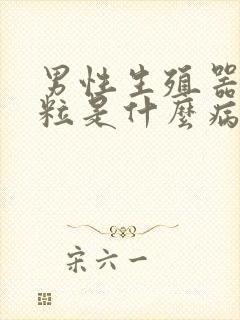 男性生殖器
粒是什麼病
宋六一